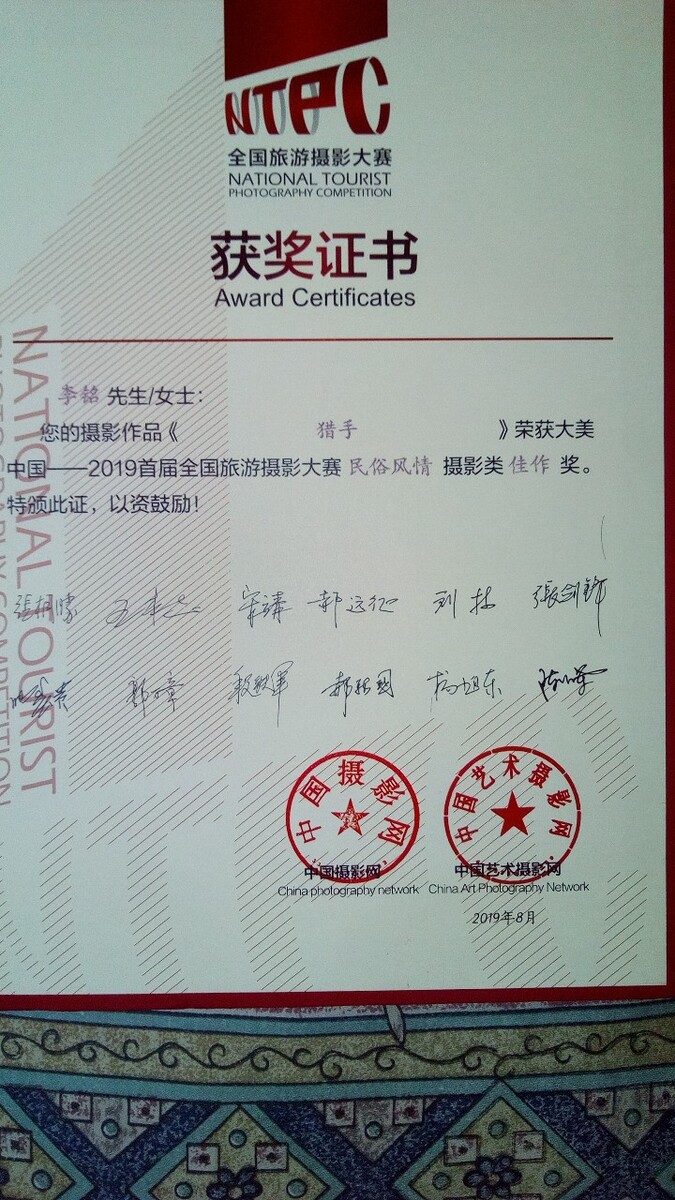 NTPC
全国旅游摄影大赛
NATIONAL TOURIST
PHOTOGRAPHY COMPETITION
获奖证书
Award Certificates
李铭 先生/女士：
您的摄影作品《 猎手 》荣获大美
中国——2019首届全国旅游摄影大赛 民俗风情 摄影类 佳作 奖。
特颁此证，以资鼓励！
NATIONAL TOURIST
PHOTOGRAPHY COMPETITION
郝远征 刘 張剑锋
杨旭东
中国摄影网
中国艺术摄影网
中国摄影网
China photography network
中国艺术摄影网
China Art Photography Network
2019年8月